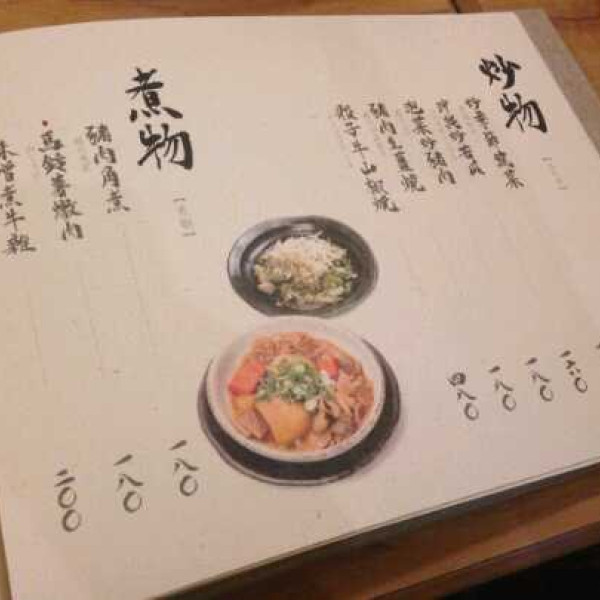 炒物
炒季節蔬菜
沖繩炒苦瓜
泡菜炒豬肉
豬肉生薑燒
骰子牛山椒燒
一六〇
一八〇
一八〇
四八〇
煮物
豬肉角煮
馬鈴薯燉肉
味噌煮牛雜
一八〇
一八〇
二〇〇